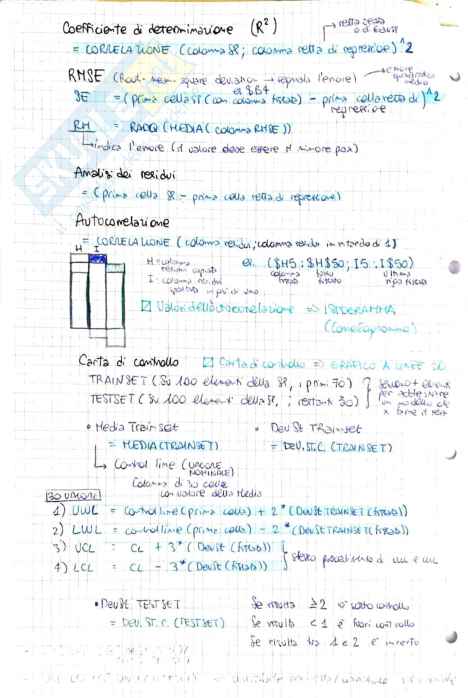 Coefficiente di determinazione (R²)
= CORRELAZIONE (colonna SP; colonna retta di regressione)^2
retta
RMSE (Root-mean-square deviation → segnala l'errore)
errore quadratico medio
es $B4
SE = (prima cella SP (con colonna fissata) - prima cella retta di regressione)^2
RM = RADQ (MEDIA (colonna RMSE))
indica l'errore (il valore deve essere il minore poss)
Analisi dei residui
= (prima cella SP - prima cella retta di regressione)
Autocorrelazione
= CORRELAZIONE (colonna residui; colonna residui in ritardo di 1)
H I
H = colonna residui
I = colonna residui
es. ($H5:$H$50; I5:I$50)
colonna fissata
tutto fissato
ultima riga fissata
Valori della autocorrelazione ⇒ ISTOGRAMMA
(Correlogramma)
Carta di controllo
Carta di controllo ⇒ GRAFICO A LINEE
TRAINSET (Su 100 elementi della SP, i primi 70)
TESTSET (Su 100 elementi della SP, i restanti 30)
servono + elementi per addestrare un modello che x farne il test
• Media Trainset
= MEDIA (TRAINSET)
• Dev St Trainset
= DEV.ST.C. (TRAINSET)
Control line (VALORE NOMINALE)
Colonna di 30 celle con valore della Media
30 VALORI
1) UWL = control line (prima cella) + 2*(DevSt TRAINSET (fissa))
2) LWL = control line (prima cella) - 2*(DevSt TRAINSET (fissa))
3) UCL = CL + 3*(DevSt (fissa))
4) LCL = CL - 3*(DevSt (fissa))
stesso procedimento di
• DevSt TESTSET
= DEV.ST.C. (TESTSET)
Se risulta ≥ 2 è sotto controllo
Se risulta < 1 è fuori controllo
Se risulta tra 1 e 2 è incerto